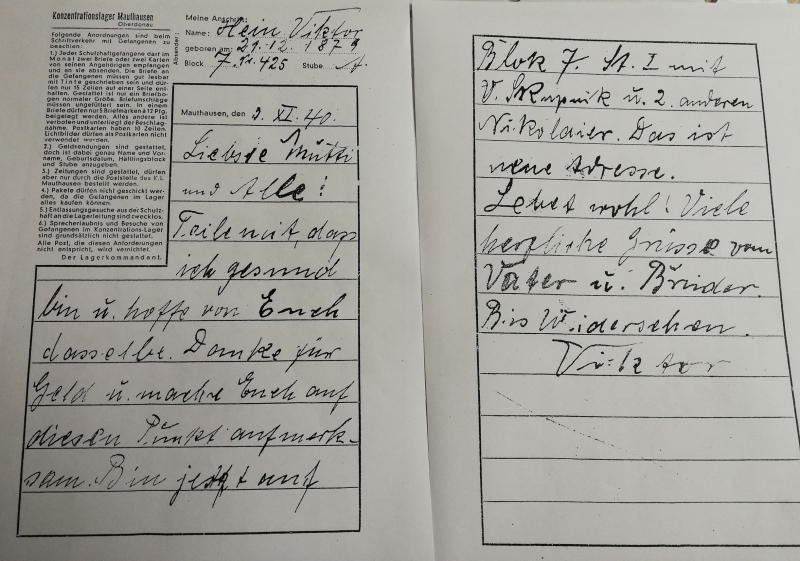 Konzentrationslager Mauthausen
Oberdonau
Folgende Anordnungen sind beim
Schriftverkehr mit Gefangenen zu
beachten:
1.) Jeder Schutzhaftgefangene darf im
Monat zwei Briefe oder zwei Karten
von seinen Angehörigen empfangen
und an sie absenden. Die Briefe an
die Gefangenen müssen gut lesbar
mit Tinte geschrieben sein und dür-
fen nur 15 Zeilen auf einer Seite ent-
halten. Gestattet ist nur ein Briefbo-
gen normaler Größe. Briefumschläge
müssen ungefüttert sein. In einem
Briefe dürfen nur 5 Briefmarken à 12 Pfg.
beigelegt werden. Alles andere ist
verboten und unterliegt der Beschlag-
nahme. Postkarten haben 10 Zeilen.
Lichtbilder dürfen als Postkarten nicht
verwendet werden.
2.) Geldsendungen sind gestattet,
doch ist dabei genau Name und Vor-
name, Geburtsdatum, Häftlingsblock
und Stube anzugeben.
3.) Zeitungen sind gestattet, dürfen
aber nur durch die Poststelle des K. L.
Mauthausen bestellt werden.
4.) Pakete dürfen nicht geschickt wer-
den, da die Gefangenen im Lager
alles kaufen können.
5.) Entlassungsgesuche aus der Schutz-
haft an die Lagerleitung sind zwecklos.
6.) Sprecherlaubnis und Besuche von
Gefangenen im Konzentrations-Lager
sind grundsätzlich nicht gestattet.
Alle Post, die diesen Anforderungen
nicht entspricht, wird vernichtet.
Der Lagerkommandant.
Absender:
Meine Anschrift:
Name: Hein Viktor
geboren am: 29.12.1879
Block 7. 425 Stube A.
Mauthausen, den 3. XI. 40.
Liebste Mutti
und Alle!
Teile mit, dass
ich gesund
bin u. hoffe von Euch
dasselbe. Danke für
Geld u. mache Euch auf
diesen Punkt aufmerk-
sam. Bin jetzt auf
Blok 7. St. I mit
V. Skupnik u. 2. anderen
Nikolaier. Das ist
neue Adresse.
Lebet wohl! Viele
herzliche Grüsse vom
Vater u. Bruder.
Bis Widersehen.
Viktor